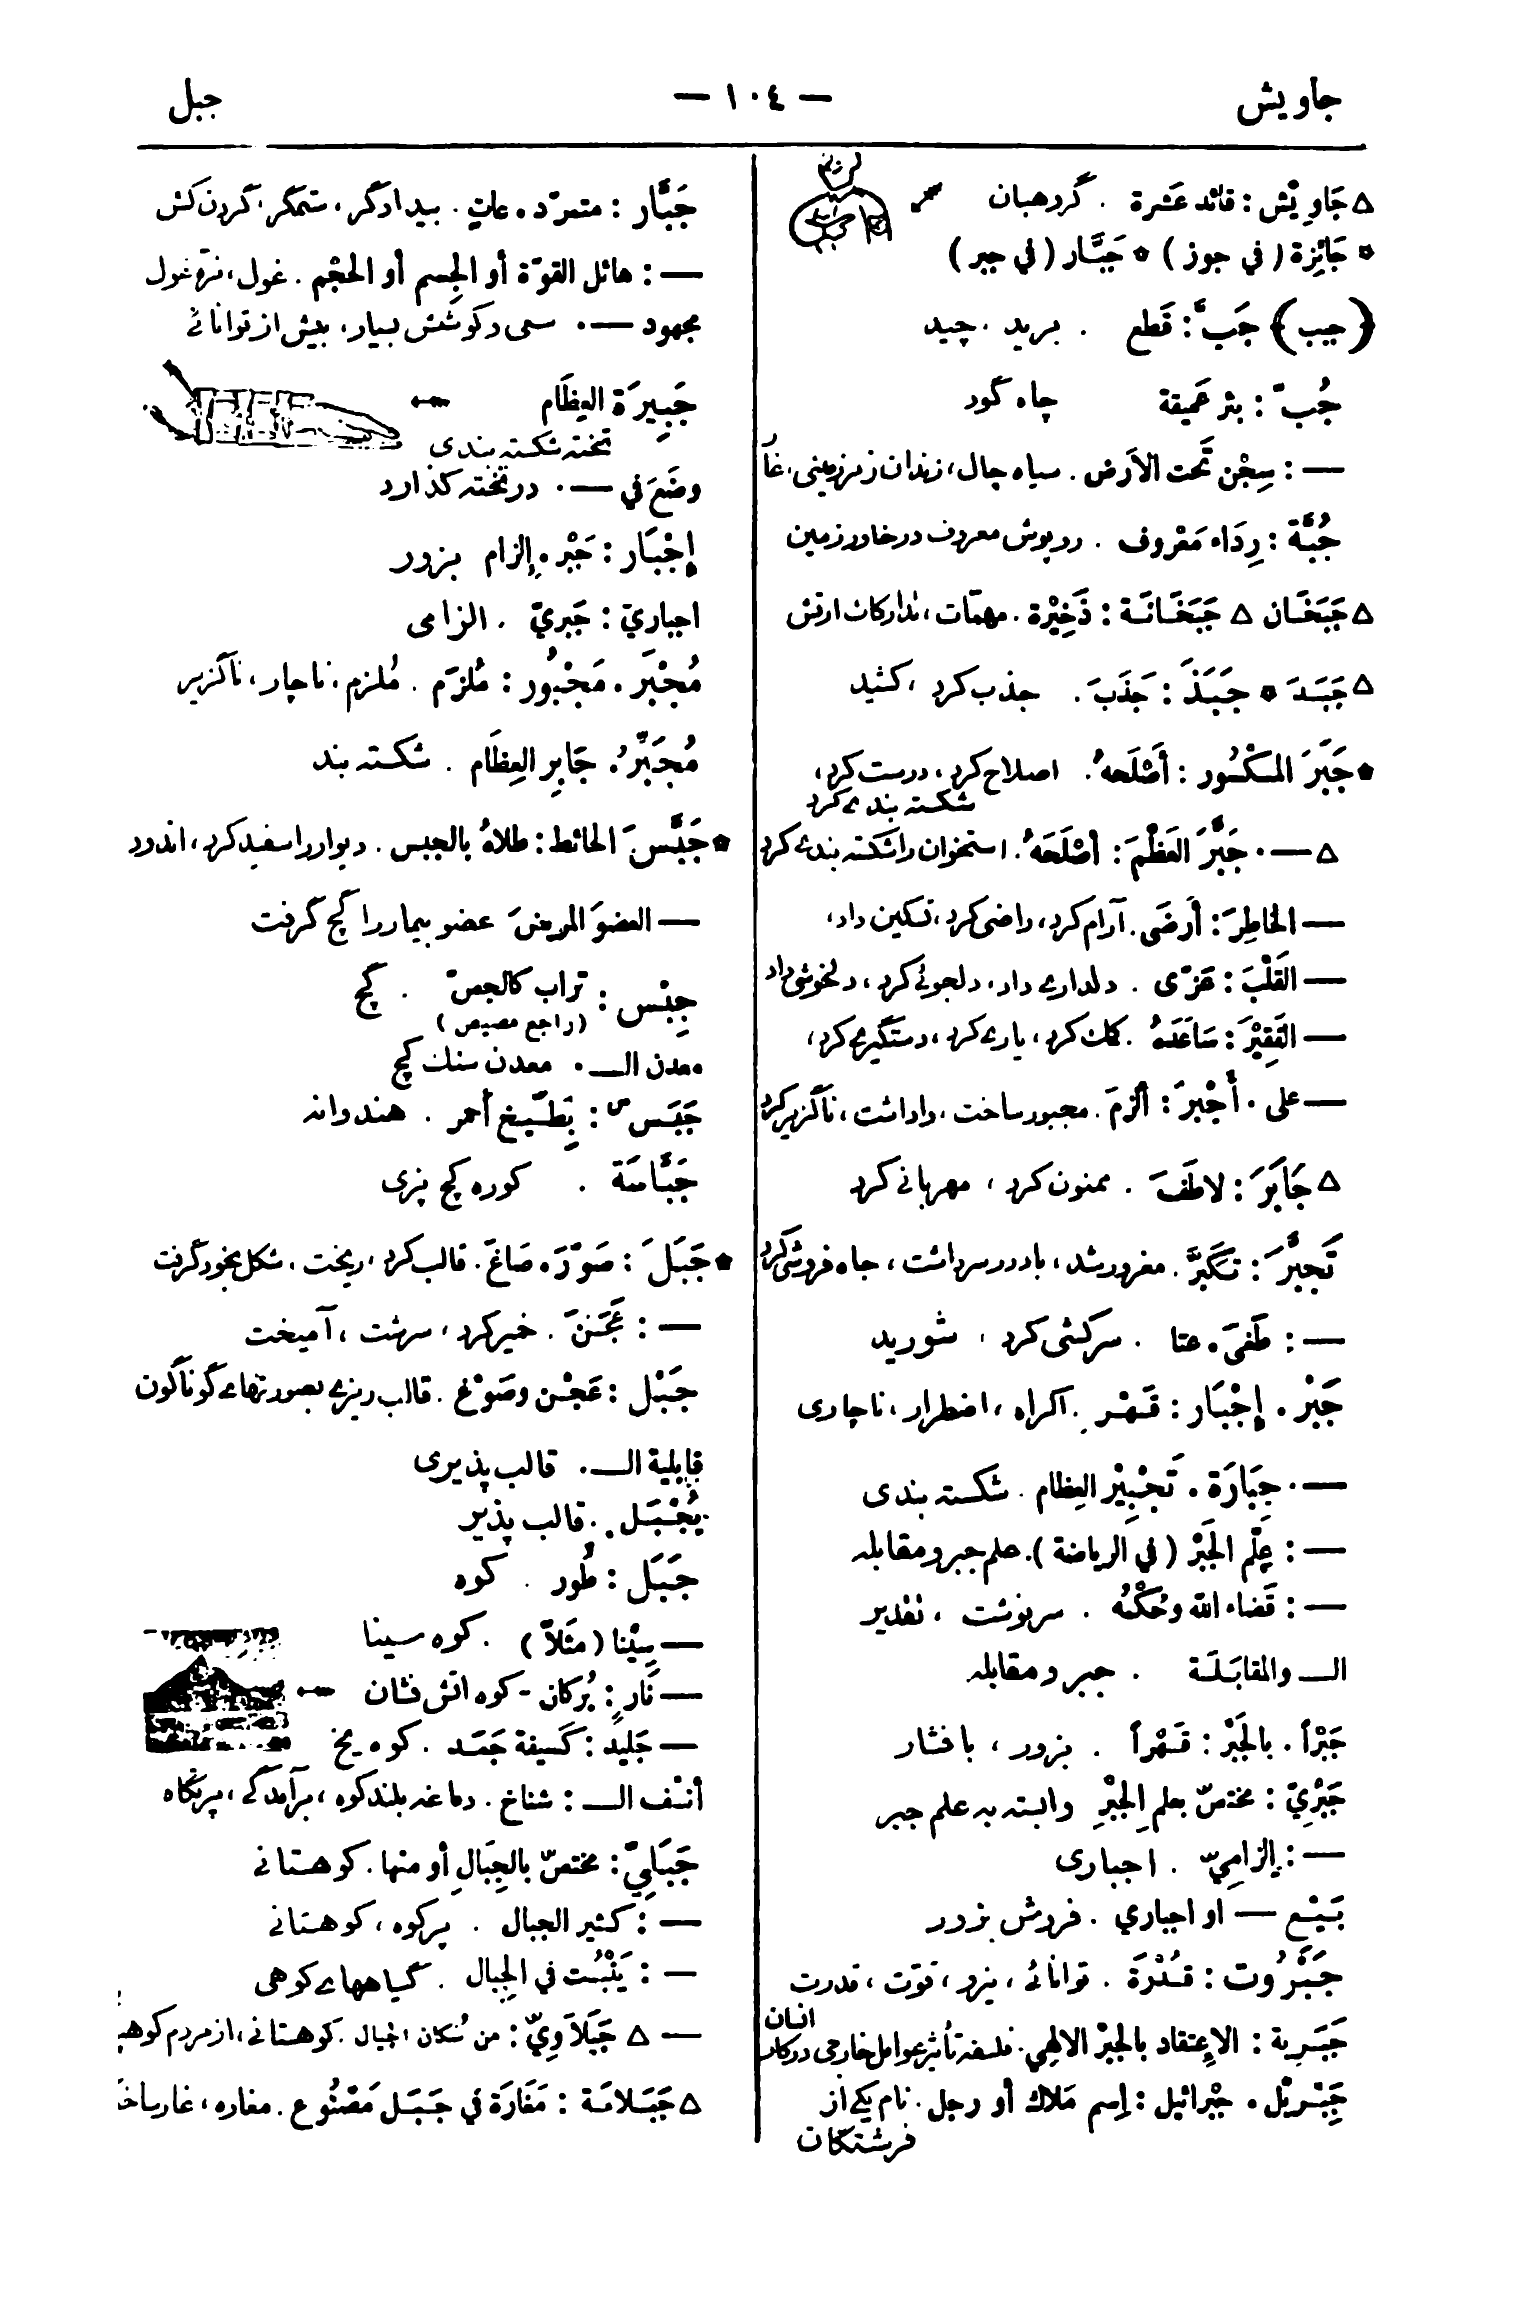 جاويش
— ١٠٤ —
جبل
△ جَاوِيْش : قائد عَشرة . گروهبان
* جَائِزة ( في جوز ) * جَبَّار ( في جبر )
﴿ جبب ﴾ جَبَّ : قَطع . بريد ، چيد
جُبّ : بئر عَميقة چاه گود
— : سِجْن تَحت الاَرض . سياه چال ، زندان زيرزمينى ،
جُبَّة : رِدَاء مَعْروف . روپوش معروف در خاور زمين
△ جَبَخَان △ جَبَخَانَة : ذَخِيْرة . مهمّات ، تداركات ارتش
△ جَبَدَ * جَبَذَ : جَذَبَ . جذب كرد ، كشيد
* جَبَرَ المَكْسُور : أَصْلَحهُ . اصلاح كرد ، درست كرد ،
شكسته بندى كرد
△ — . جَبَّرَ العَظْمَ : أَصْلَحَهُ . استخوان را شكسته بندى كرد
— الخاطِرَ : أَرضَى . آرام كرد ، راضى كرد ، تسكين داد ،
— القَلْبَ : عَزّى . دلدارى داد ، دلجوئى كرد ، دلخوشى داد
— الفَقِيْرَ : سَاعَدَهُ . كمك كرد ، يارى كرد ، دستگيرى كرد ،
— على . أَجْبرَ : أَلزمَ . مجبور ساخت ، واداشت ، ناگزير كرد
△ جَابَرَ : لاطَفَ . ممنون كرد ، مهربانى كرد
تَجبَّرَ : تكَبَّرَ . مغرور شد ، باد در سر داشت ، جاه فروشى كرد
— : طَغىَ ، عتا . سركشى كرد ، شوريد
جَبْر . إِجْبَار : قَهْر . اكراه ، اضطرار ، ناچارى
— . جِبَارَة . تَجْبِيْر العِظام . شكسته بندى
— : عِلْم الجَبْر ( في الرياضة ) . علم جبر و مقابله
— : قَضاء الله وحُكْمُهُ . سرنوشت ، تقدير
الـ — والمقابَلَة . جبر و مقابله
جَبْراً . بالجَبْر : قَهْراً . بزور ، با فشار
جَبْرِيّ : مختصّ بعلم الجَبْرِ وابسته به علم جبر
— : إلزامِيّ . اجبارى
بَيْع — او اجباري . فروش بزور
جَبَرُوت : قُدْرَة . توانائى ، نيرو ، قوّت ، قدرت
انسان
جَبَرِية : الاِعتقاد بالجَبْر الالهِي . فلسفه تأثير عوامل خارجى در كار
جِبْرِيْل . جْبرائيل : اِسم مَلاك أو رجل . نام يكى از
فرشتگان
جَبَّار : متمرّد ، عاتٍ . بيدادگر ، ستمگر ، گردن كش
— : هائل القوّة أو الجِسم أو الحجْم . غول ، نرّه غول
مجهود — . سعى و كوشش بسيار ، بيش از توانائى
جَبِيرَة العِظَام
تخته شكسته بندى
وضَعَ في — . در تخته گذارد
إِجْبَار : جَبْر . إلزام بزور
اجباريّ : جَبريّ . الزامى
مُجْبَر . مَجْبُور : مُلزَم . مُلزم ، ناچار ، ناگزير
مُجَبِّرُ . جَابِر العِظَام . شكسته بند
* جَبَّسَ الحائط : طلاهُ بالجبس . ديوار را سفيد كرد ، اندود
— العضوَ المريضَ عضو بيمار را گچ گرفت
جِبْس : تراب كالجصّ . گچ
( راجع مصيص )
معدن الـ — . معدن سنگ گچ
جَبَس : بِطّيخ أحمر . هندوانه
جَبَّاسَة . كوره گچ پزى
* جَبَلَ : صَوّرَ ، صَاغَ . قالب كرد ، ريخت ، شكل بخود گرفت
— : عَجَنَ . خمير كرد ، سرشت ، آميخت
جَبْل : عَجْن وصَوْغ . قالب ريزى بصورتهاى گوناگون
قابلية الـ — . قالب پذيرى
يُجْبَل . قالب پذير
جَبَل : طُور . كوه
— سِيْنا ( مثَلاً ) . كوه سينا
— نَار : بُركان - كوه اتش فشان
— جَليد : كَسِيفة جَمَد . كوه يخ
أنْف الـ — : شناخ . دماغه بلند كوه ، برآمدگى ، پرتگاه
جَبَلِيّ : مختصّ بالجِبَالِ أو منها . كوهستانى
— : كثير الجبال . پركوه ، كوهستانى
— : يَنْبُت في الجِبال . گياههاى كوهى
— △ جَبَلاَوِيّ : من سُكان الجبال . كوهستانى ، از مردم
△ جَبَلامَة : مَغَارَة في جَبَل مَصْنُوع . مغاره ، غار